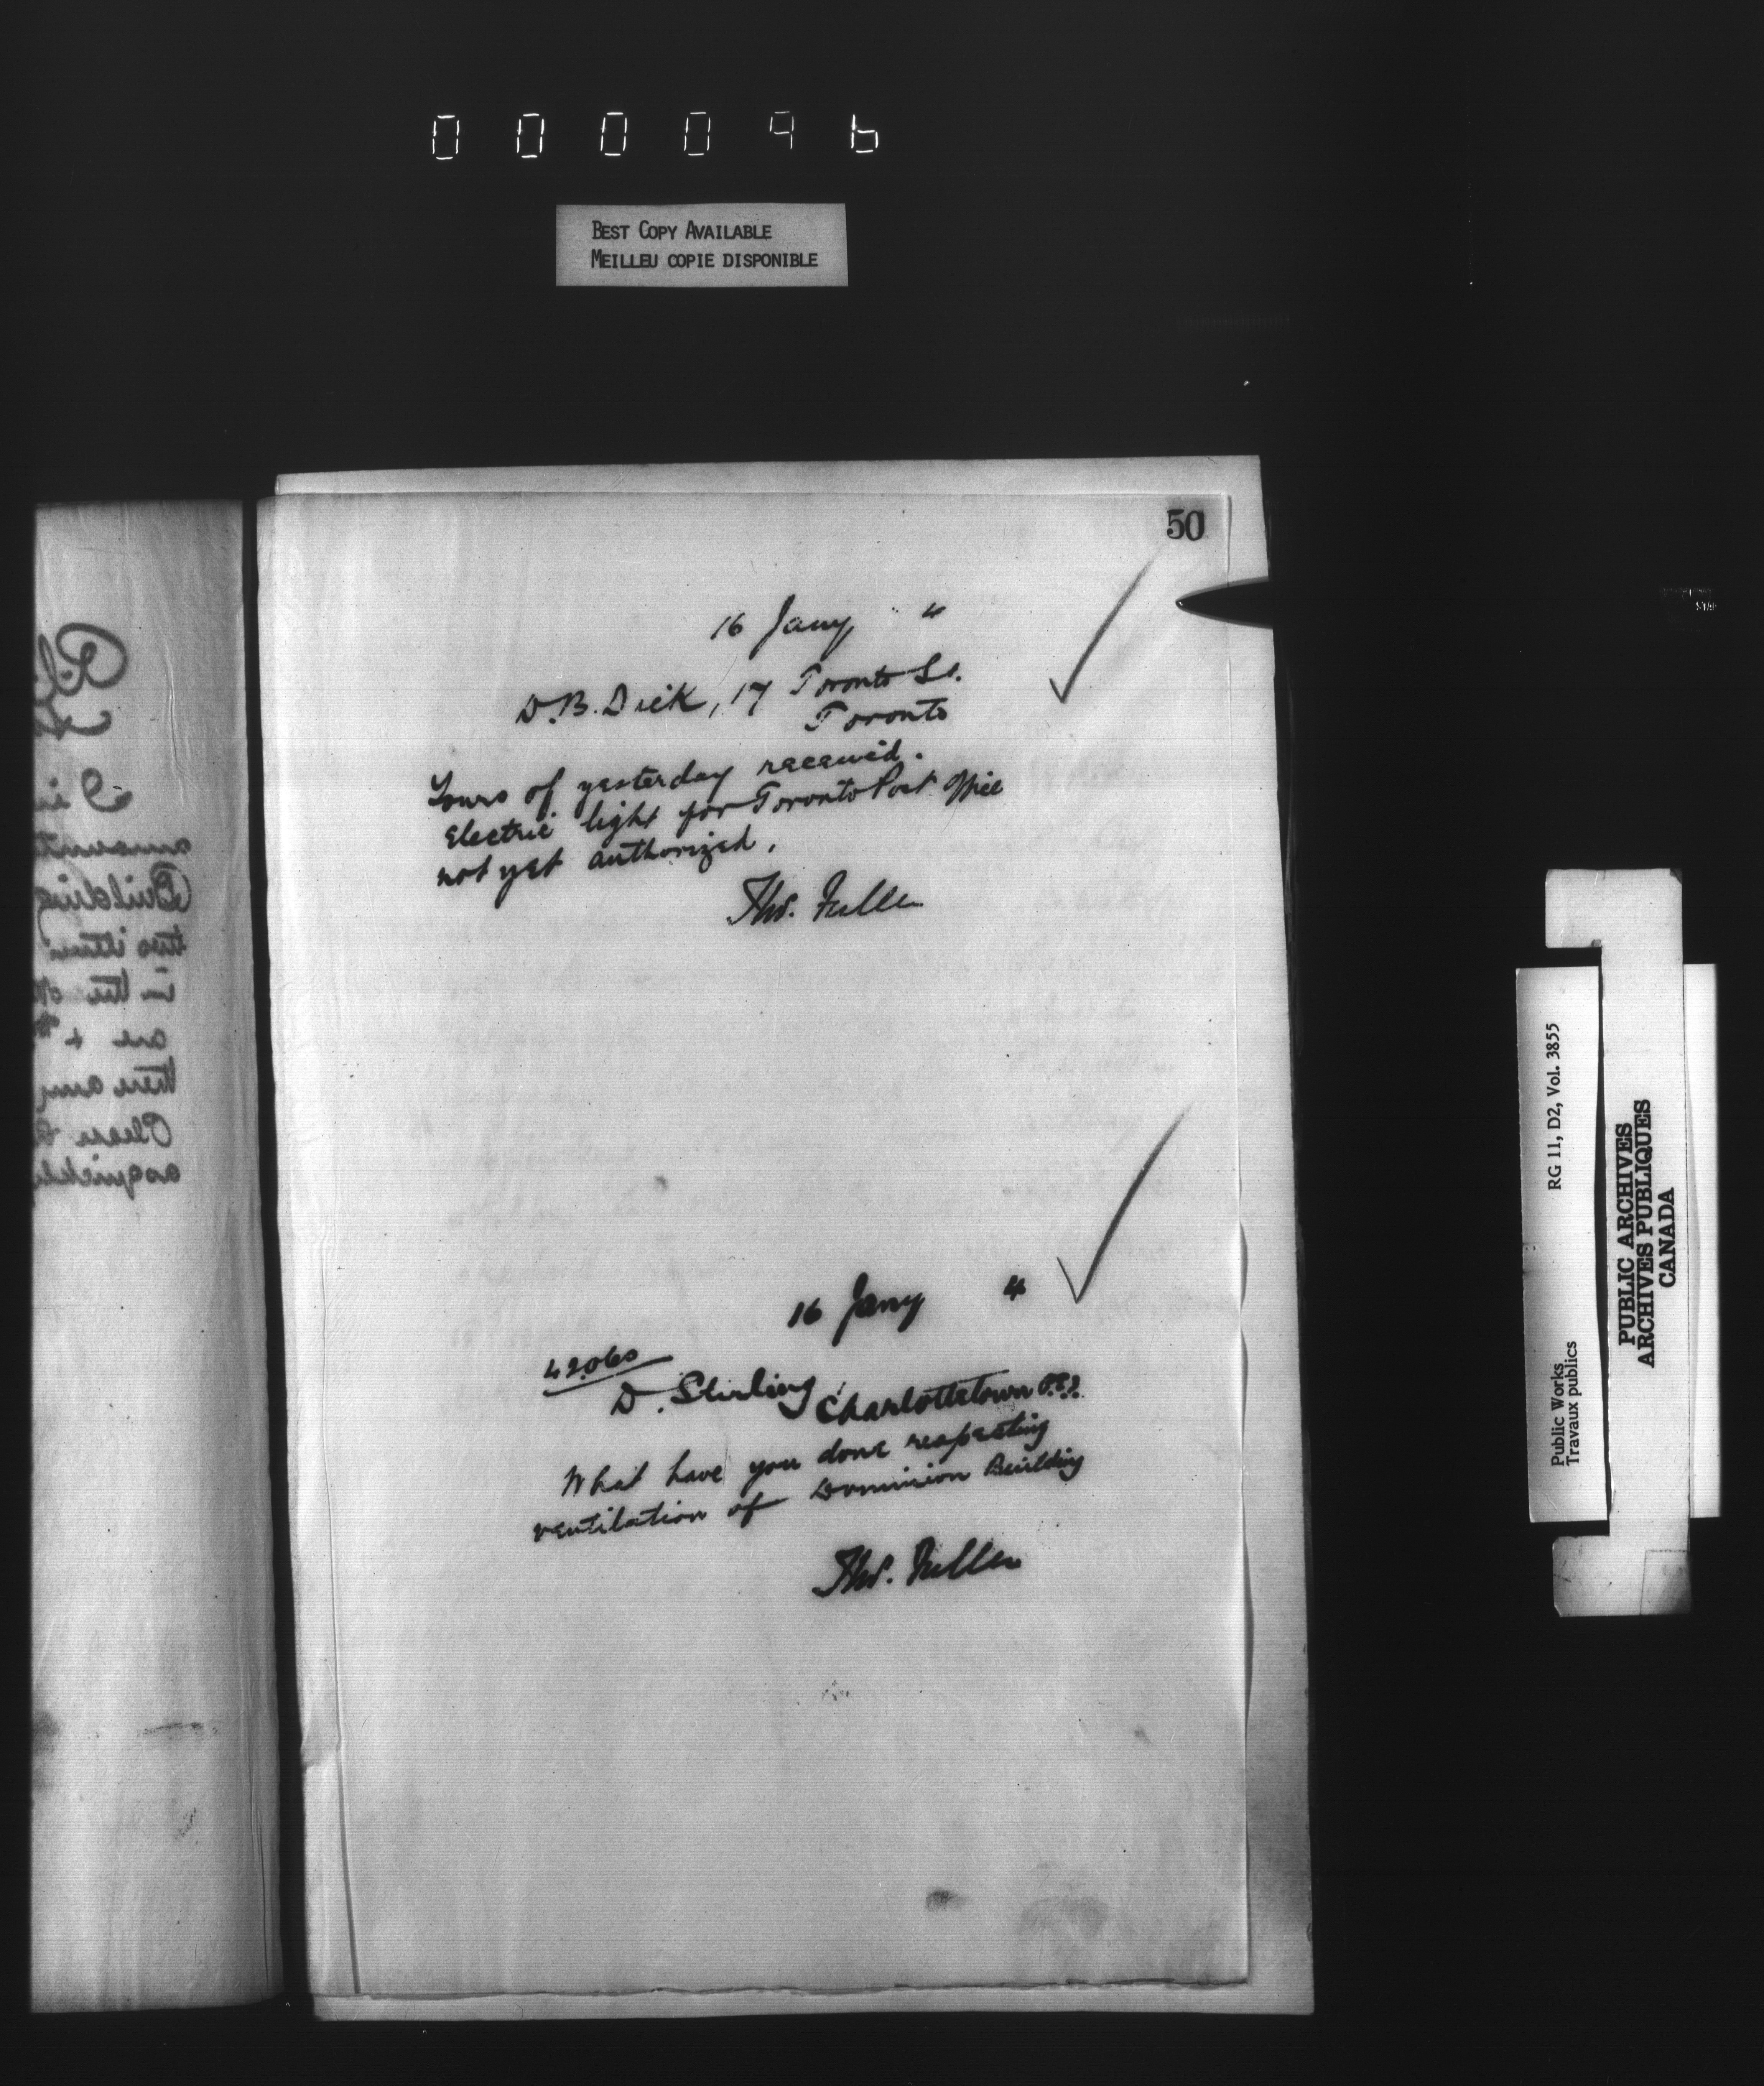 000096
BEST COPY AVAILABLE
MEILLEU COPIE DISPONIBLE
50
16 Jany 4
D.B. Dick, 17 Toronto St.
Toronto
Yours of yesterday received.
Electric light for Toronto Post Office
not yet authorized.
Tho⁠s. Fuller
16 Jany 4
42060
D. Stirling, Charlottetown P.E.I.
What have you done respecting
ventilation of Dominion Building
Thos. Fuller
Building
two items
in the
are +
there any
Please
Public Works
Travaux publics
RG 11, D2, Vol. 3855
PUBLIC ARCHIVES
ARCHIVES PUBLIQUES
CANADA